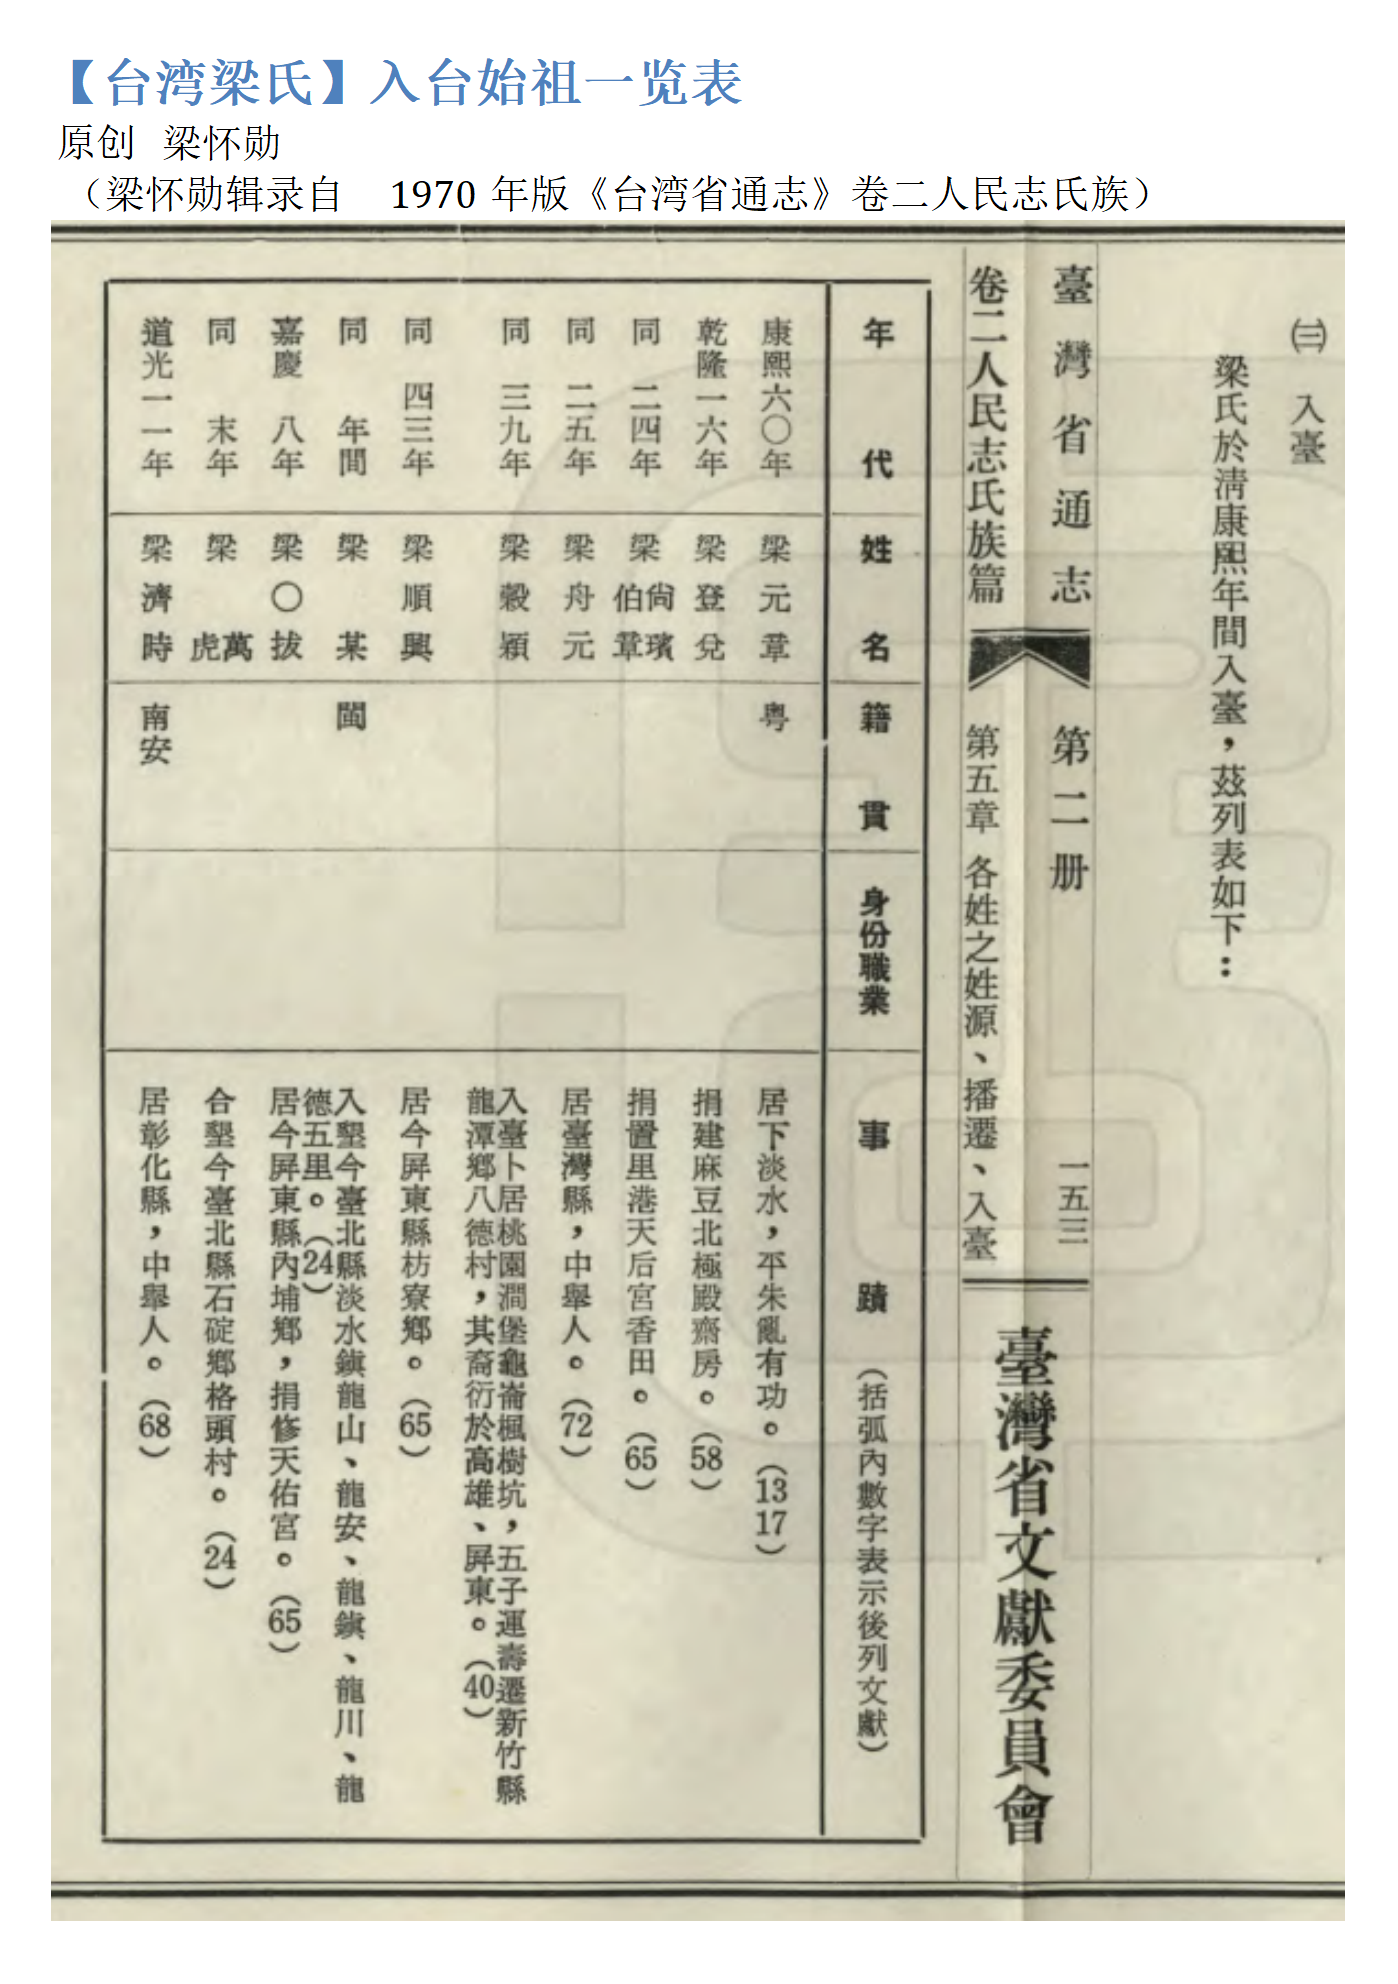 【台湾梁氏】入台始祖一览表
原创 梁怀勋
（梁怀勋辑录自 1970 年版《台湾省通志》卷二人民志氏族）
㈢ 入臺
梁氏於淸康熙年間入臺，茲列表如下：
臺灣省通志 第二册 一五三
卷二人民志氏族篇 第五章 各姓之姓源、播遷、入臺
臺灣省文獻委員會
年代 姓名 籍貫 身份職業 事蹟（括弧內數字表示後列文獻）
康熙六〇年 梁元章 粵 居下淡水，平朱亂有功。（13 17）
乾隆一六年 梁登兌 捐建麻豆北極殿齋房。（58）
同 二四年 梁尙璸 伯章 捐置里港天后宮香田。（65）
同 二五年 梁舟元 居臺灣縣，中舉人。（72）
同 三九年 梁穀穎 入臺卜居桃園澗堡龜崙楓樹坑，五子運壽遷新竹縣
龍潭鄉八德村，其裔衍於高雄、屏東。（40）
同 四三年 梁順興 居今屏東縣枋寮鄉。（65）
同 年間 梁某 閩 入墾今臺北縣淡水鎭龍山、龍安、龍鎭、龍川、龍
德五里。（24）
嘉慶 八年 梁〇拔 居今屏東縣內埔鄉，捐修天佑宮。（65）
同 末年 梁萬 虎 合墾今臺北縣石碇鄉格頭村。（24）
道光一一年 梁濟時 南安 居彰化縣，中舉人。（68）